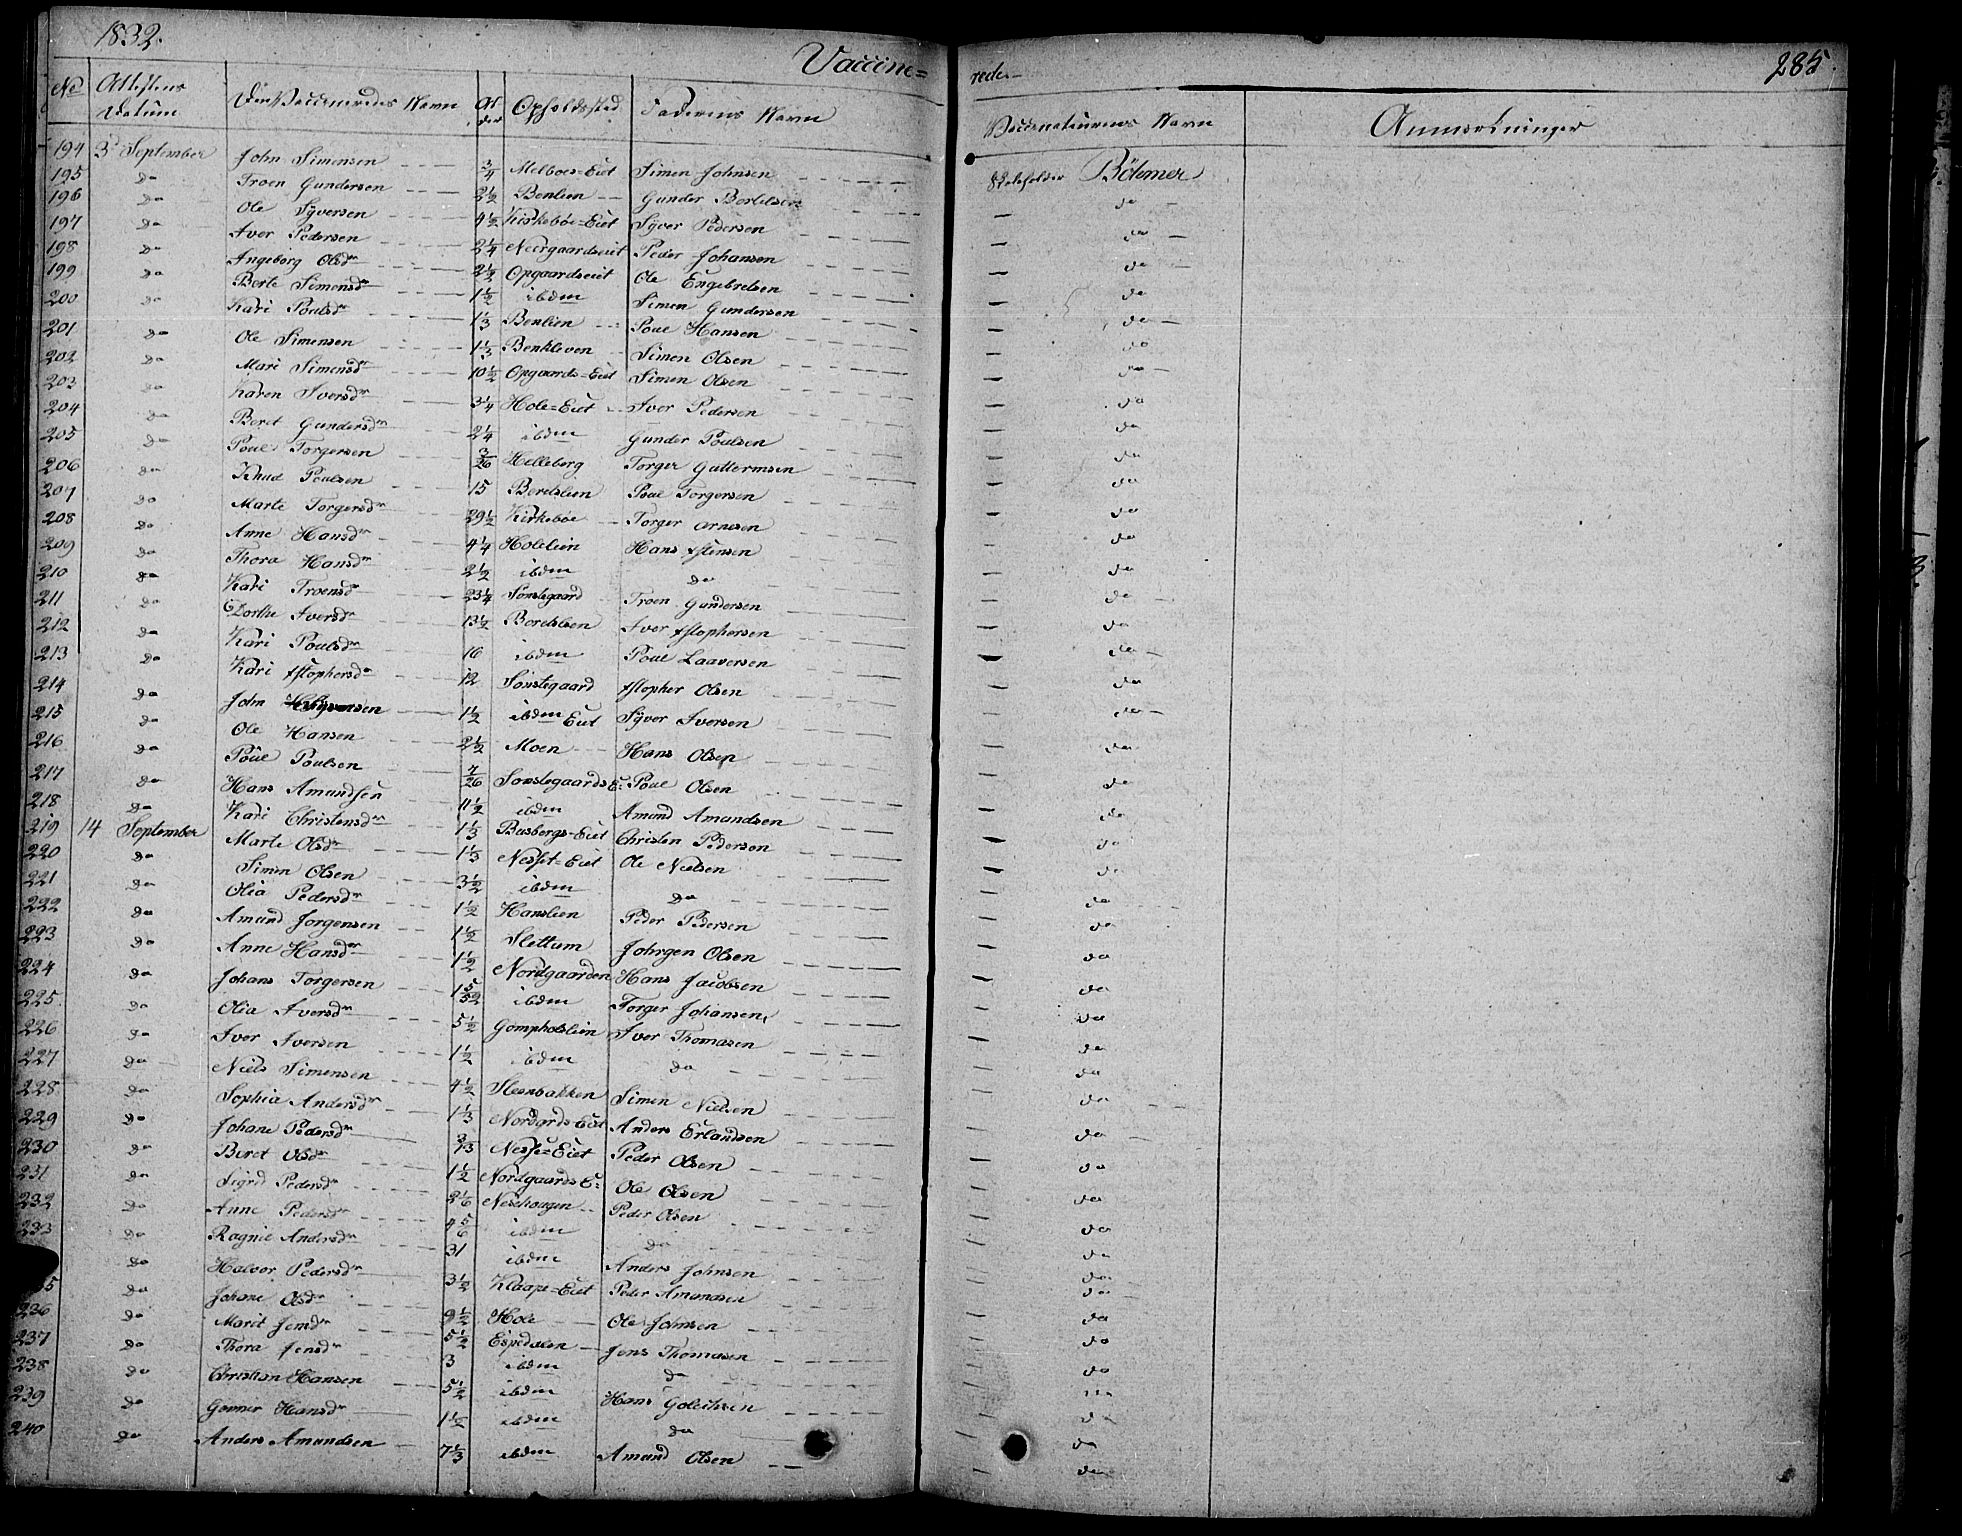 1832.
Vaccine= rede.
285.
No Attestens Datum Den Vaccineredes Navn Al der Opholdssted Faderens Navn Vaccinateurens Navn Anmærkninger
194 3 September John Simensen 3/4 Melboes=Eiet Simen Johnsen Böhmer
195 do Troen Gundersen 2 1/2 Benlien Gunder Bertelsen do
196 do Ole Syversen 4 1/2 Kirkebøe=Eiet Syver Pedersen do
197 do Iver Pedersen 2 1/4 Neergaardseiet Peder Johansen do
198 do Ingeborg Olsdr 2 1/2 Opgaardseiet Ole Engebretsen do
199 do Berte Simensdr 1 1/2 ibdm Simen Gundersen do
200 do Kari Poulsdr 1 1/3 Benlien Poul Hansen do
201 do Ole Simensen 1 1/3 Benkleven Simen Olsen do
202 do Mari Simensdr 10 1/2 Opgaards=Eiet Simen Olsen do
203 do Karen Iversdr 3 1/4 Hole=Eiet Iver Pedersen do
204 do Beret Gundersdr 2 1/4 ibdm Gunder Poulsen do
205 do Poul Torgersen 3/26 Helleberg Torger Guttormsen do
206 do Knud Poulsen 15 Beretslien Poul Torgersen do
207 do Marte Torgersdr 29 1/2 Kirkebøe Torger Arnesen do
208 do Anne Hansdr 4 1/4 Holelien Hans Østensen do
209 do Thora Hansdr 2 1/2 ibdm do do
210 do Kari Troensdr 23 1/4 Sonstegaard Troen Gundersen do
211 do Dorthe Iversdr 13 1/2 Beretslien Iver Xstophersen do
212 do Kari Poulsdr 16 ibdm Poul Laaversen do
213 do Kari Xstophersdr 12 Sonstegaard Xstopher Olsen do
214 do John Syversen 1 1/2 ibdm Eiet Syver Iversen do
215 do Ole Hansen 2 1/2 Moen Hans Olsen do
216 do Poul Poulsen 7/26 Sonstegaards E: Poul Olsen do
217 do Hans Amundsen 11 1/2 ibdm Amund Amundsen do
218 do Kari Christensdr 1 1/3 Busbergs=Eiet Christen Pedersen do
219 14 September Marte Olsdr 1 1/3 Nesset=Eiet Ole Nielsen do
220 do Simen Olsen 3 1/2 ibdm do do
221 do Olia Pedersdr 1 1/2 Hanslien Peder Pedersen do
222 do Amund Jorgensen 1 1/2 Slettum Johrgen Olsen do
223 do Anne Hansdr 1 1/2 Nordgaarden Hans Jacobsen do
224 do Johans Torgersen 1 5/52 ibdm Torger Johansen do
225 do Olia Iversdr 5 1/2 Gompholslien Iver Thomasen do
226 do Iver Iversen 1 1/2 ibdm do do
227 do Niels Simensen 4 1/2 Steenbakken Simen Nielsen do
228 do Sophia Andersdr 1 1/3 Nordgrds=Eiet Anders Erlandsen do
229 do Johane Pedersdr 3/13 Nesse=Eiet Peder Olsen do
230 do Beret Olsdr 1 1/2 Nordgaards E: Ole Olsen do
231 do Sigrid Pedersdr 2 1/6 Neshougen Peder Olsen do
232 do Anne Pedersdr 4 5/6 ibdm do do
233 do Ragnie Andersdr 31 ibdm Anders Johnsen do
do Halvor Pedersdr 3 1/2 Klaape=Eiet Peder Amundsen do
35 do Johane Olsdr 9 1/2 Hole Ole Johnsen do
236 do Marit Jensdr 5 1/2 Espedalen Jens Thomasen do
237 do Thora Jensdr 3 ibdm do do
238 do Christian Hansen 5 1/2 ibdm Hans Goleiksen do
239 do Gonner Hansdr 1 1/2 ibdm do do
240 do Anders Amundsen 7 1/3 ibdm Amund Olsen do